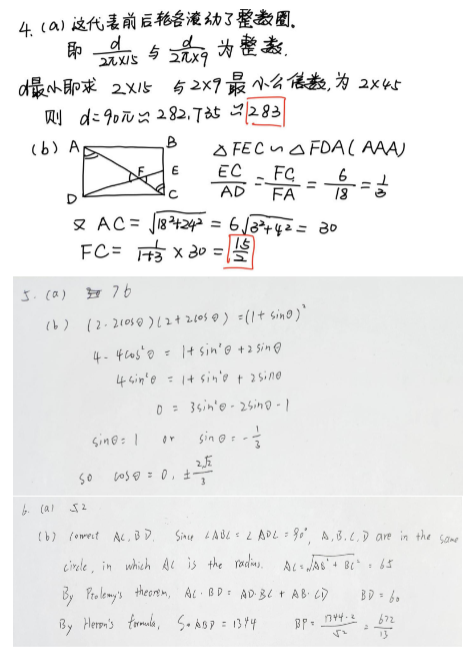 4. (a) 这代表前后轮各滚动了整数圈.
即 d/2π×15 与 d/2π×9 为整数.
d最小即求 2×15 与 2×9 最小公倍数, 为 2×45
则 d=90π≈282.735≈283
(b) A B F E D C
△FEC∽△FDA(AAA)
EC/AD = FC/FA = 6/18 = 1/3
又 AC = √18²+24² = 6√3²+4² = 30
FC = 1/1+3 × 30 = 15/2
5. (a) 76
(b) (2-2cosθ)(2+2cosθ) = (1+sinθ)²
4-4cos²θ = 1+sin²θ+2sinθ
4sin²θ = 1+sin²θ+2sinθ
0 = 3sin²θ-2sinθ-1
sinθ=1 or sinθ=-1/3
so cosθ=0, ±2√2/3
6. (a) 52
(b) connect AC, BD. Since ∠ABC=∠ADC=90°, A, B, C, D are in the same
circle, in which AC is the radius. AC=√AB²+BC² = 65
By Ptolemy's theorem, AC·BD = AD·BC + AB·CD BD=60
By Heron's formula, S△ABD = 1344 BP = 1344·2/52 = 672/13